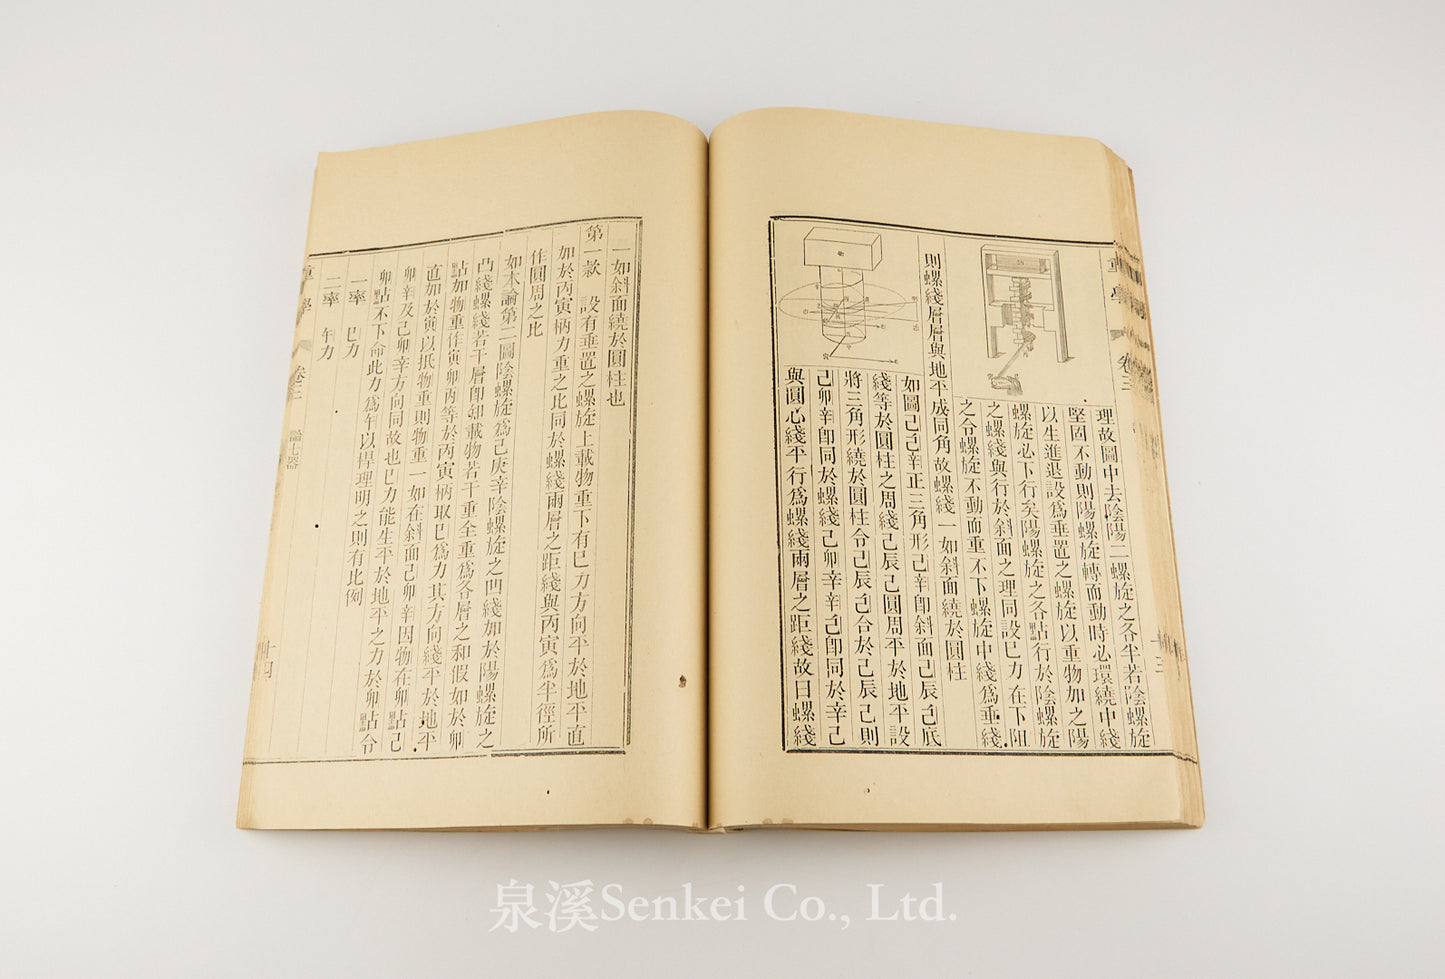 理故圖中去陰陽二螺旋之各半若陰螺旋
堅固不動則陽螺旋轉而動時必環繞中綫
以生進退設爲垂置之螺旋以重物加之陽
螺旋必下行矣陽螺旋之各點行於陰螺旋
之螺綫與行於斜面之理同設巳力在下阻
之令螺旋不動而重不下螺旋中綫爲垂綫
則螺綫層層與地平成同角故螺綫一如斜面繞於圓柱
如圖己己辛正三角形己辛卽斜面己辰己底
綫等於圓柱之周綫己辰己圓周平於地平設
將三角形繞於圓柱令己辰己合於己辰己則
己卯辛卽同於螺綫己卯辛辛己卽同於辛己
與圓心綫平行爲螺綫兩層之距綫故曰螺綫
重學
卷三
十三
一如斜面繞於圓柱也
第一款 設有垂置之螺旋上載物重下有巳力方向平於地平直
加於丙寅柄力重之比同於螺綫兩層之距綫與丙寅爲半徑所
作圓周之比
如本論第二圖陰螺旋爲己庚辛陰螺旋之凹綫加於陽螺旋之
凸綫螺綫若干層卽如載物若干重全重爲各層之和假如於卯
點加物重作寅卯丙等於丙寅柄取巳爲力其方向綫平於地平
直加於寅以抵物重則物重一如在斜面己卯辛因物在卯點己
卯辛及己卯辛方向同故也巳力能生平於地平之力於卯點令
卯點不下命此力爲午以桿理明之則有比例
一率 巳力
二率 午力
重學
卷三
論七器
十四
泉溪Senkei Co., Ltd.